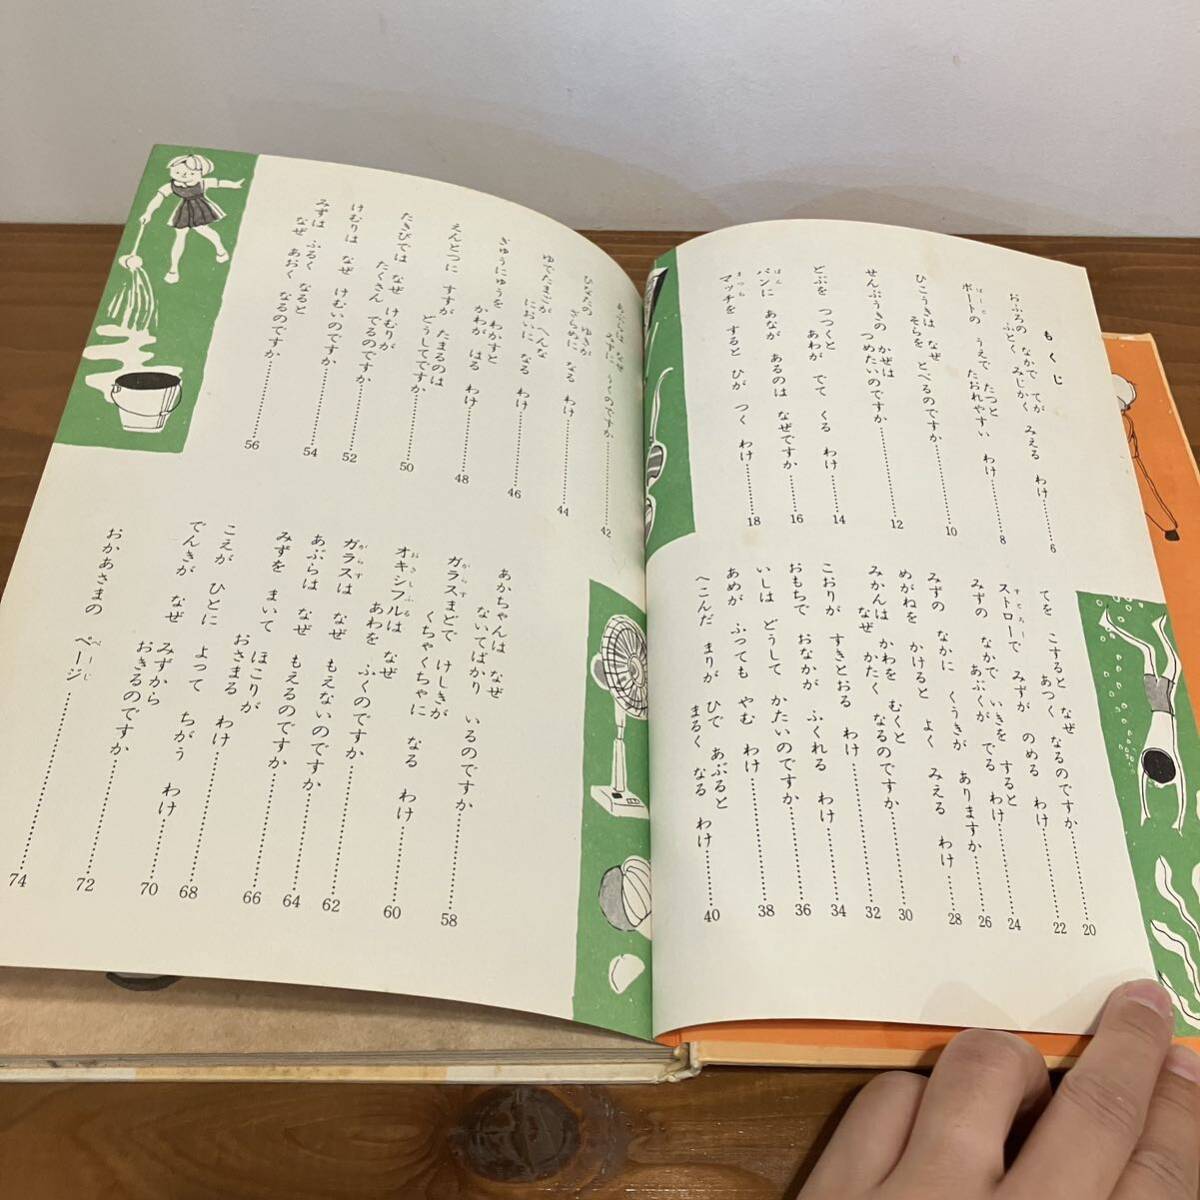 もくじ
おふろの なかで てが みえる わけ
ふとく みじかく
6
ぼーと
ボートの うえで たつと
たおれやすい わけ
8
ひこうきは なぜ
そらを とべるのですか
10
せんぷうきの かぜは
つめたいのですか
12
どぶを つつくと
あわが でて くる わけ
14
ぱん
パンに あなが あるのは なぜですか
16
まっち
マッチを すると ひが つく わけ
18
てを こすると なぜ
あつく なるのですか
20
すとろー
ストローで みずが のめる わけ
22
みずの なかで いきを すると
あぶくが でる わけ
24
みずの なかに くうきが ありますか
26
めがねを かけると よく みえる わけ
28
みかんは かわを むくと
なぜ かたく なるのですか
30
こおりが すきとおる わけ
32
おもちで おなかが ふくれる わけ
34
いしは どうして かたいのですか
36
あめが ふっても やむ わけ
38
へこんだ まりが ひで あぶると
まるく なる わけ
40
あぶらは なぜ
みずに うくのですか
42
ひなたの ゆきが
さきに なる わけ
44
ゆでたまごが へんな
においに なる わけ
46
ぎゅうにゅうを わかすと
かわが はる わけ
48
えんとつに すすが たまるのは
どうしてですか
50
たきびでは なぜ けむりが
たくさん でるのですか
52
けむりは なぜ けむいのですか
54
みずは ふるく なると
なぜ あおく なるのですか
56
あかちゃんは なぜ
ないてばかり いるのですか
58
がらす
ガラスまどで けしきが
くちゃくちゃに なる わけ
60
おきしふる
オキシフルは なぜ
あわを ふくのですか
62
がらす
ガラスは なぜ もえないのですか
64
あぶらは なぜ もえるのですか
66
みずを まいて ほこりが
おさまる わけ
68
こえが ひとに よって ちがう わけ
70
でんきが なぜ みずから
おきるのですか
72
ぺーじ
おかあさまの ページ
74